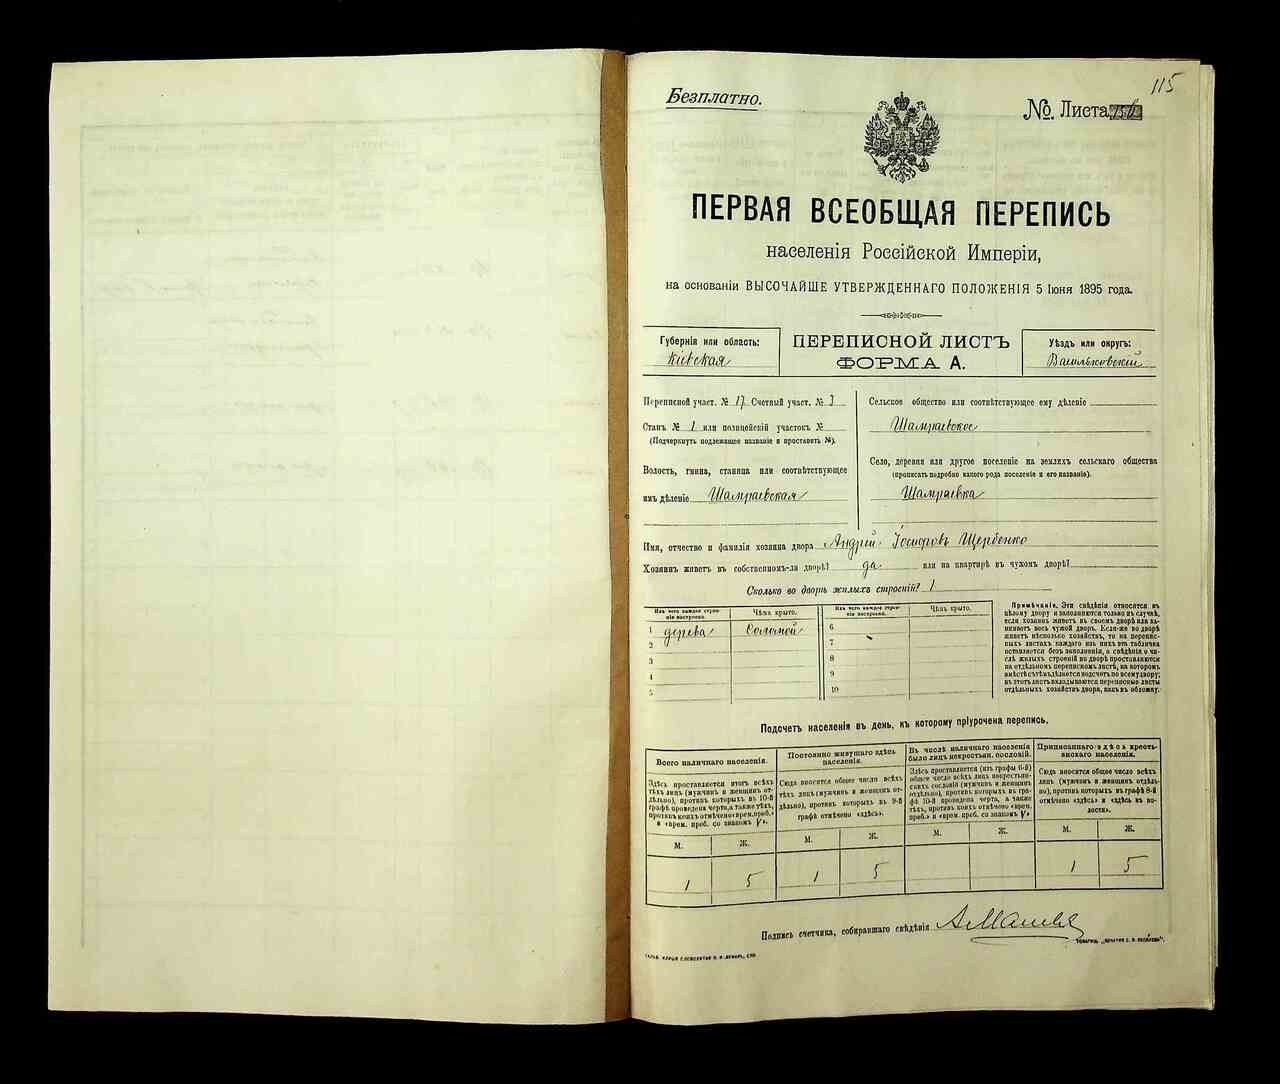 115
Безплатно.
№ Листа
ПЕРВАЯ ВСЕОБЩАЯ ПЕРЕПИСЬ
населенія Россійской Имперіи,
на основаніи ВЫСОЧАЙШЕ УТВЕРЖДЕННАГО ПОЛОЖЕНІЯ 5 Іюня 1895 года.
Губернія или область:
Кіевская
ПЕРЕПИСНОЙ ЛИСТЪ
ФОРМА А.
Уѣздъ или округъ:
Васильковскій
Переписной участ. № 17 Счетный участ. № 3
Станъ № 1 или полицейскій участокъ №
(Подчеркнуть подлежащее названіе и проставить №).
Волость, гмина, станица или соотвѣтствующее
имъ дѣленіе Шамраевская
Сельское общество или соотвѣтствующее ему дѣленіе
Шамраевское
Село, деревня или другое поселеніе на земляхъ сельскаго общества
(прописать подробно какого рода поселеніе и его названіе).
Шамраевка
Имя, отчество и фамилія хозяина двора Андрій Щербенко
Хозяинъ живетъ въ собственномъ-ли дворѣ? да или на квартирѣ въ чужомъ дворѣ?
Сколько во дворѣ жилыхъ строеній? 1
Изъ чего каждое строе-
ніе построено.
Чѣмъ крыто.
Изъ чего каждое строе-
ніе построено.
Чѣмъ крыто.
1 дерева Соломой 6
2 7
3 8
4 9
5 10
Примѣчаніе. Эти свѣдѣнія относятся къ
цѣлому двору и заполняются только въ случаѣ,
если хозяинъ живетъ въ своемъ дворѣ или за-
нимаетъ весь чужой дворъ. Если-же во дворѣ
живетъ нѣсколько хозяйствъ, то на перепис-
ныхъ листахъ каждаго изъ нихъ эта табличка
оставляется безъ заполненія, а свѣдѣнія о чи-
слѣ жилыхъ строеній во дворѣ проставляются
на отдѣльномъ переписномъ листѣ, на которомъ
вмѣстѣ съ тѣмъ дѣлается подсчетъ по всему двору;
въ этотъ листъ вкладываются переписные листы
отдѣльныхъ хозяйствъ двора, какъ въ обложку.
Подсчетъ населенія въ день, къ которому пріурочена перепись.
Всего наличнаго населенія.
Постоянно живущаго здѣсь
населенія.
Въ числѣ наличнаго населенія
было лицъ некрестьян. сословій.
Приписаннаго здѣсь кресть-
янскаго населенія.
Здѣсь проставляется итогъ всѣхъ
тѣхъ лицъ (мужчинъ и женщинъ от-
дѣльно), противъ которыхъ въ 10-й
графѣ проведена черта, а также тѣхъ,
противъ коихъ отмѣчено «врем. преб.»
и «врем. преб. со знакомъ V».
Сюда вносится общее число всѣхъ
тѣхъ лицъ (мужчинъ и женщинъ от-
дѣльно), противъ которыхъ въ 9-й
графѣ отмѣчено «здѣсь».
Здѣсь проставляется (изъ графы 6-й)
общее число всѣхъ лицъ некрестьян-
скихъ сословій (мужчинъ и женщинъ
отдѣльно), противъ которыхъ въ гра-
фѣ 10-й проведена черта, а также
тѣхъ, противъ коихъ отмѣчено «врем.
преб.» и «врем. преб. со знакомъ V»
Сюда вносится общее число всѣхъ
лицъ (мужчинъ и женщинъ отдѣль-
но), противъ которыхъ въ графѣ 8-й
отмѣчено «здѣсь» и «здѣсь въ во-
лости».
М. Ж. М. Ж. М. Ж. М. Ж.
1 5 1 5 1 5
Подпись счетчика, собиравшаго свѣдѣнія